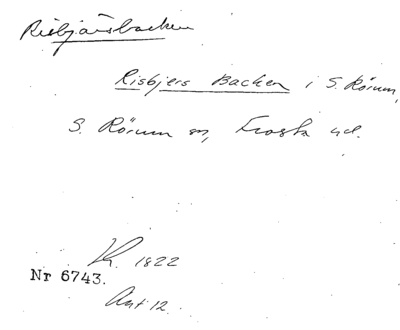 Risbjärsbacken
Risbjers Backen i S. Rörum,
S. Rörum sn, Frosta hd.
1822
Nr 6743.
Ant 12.